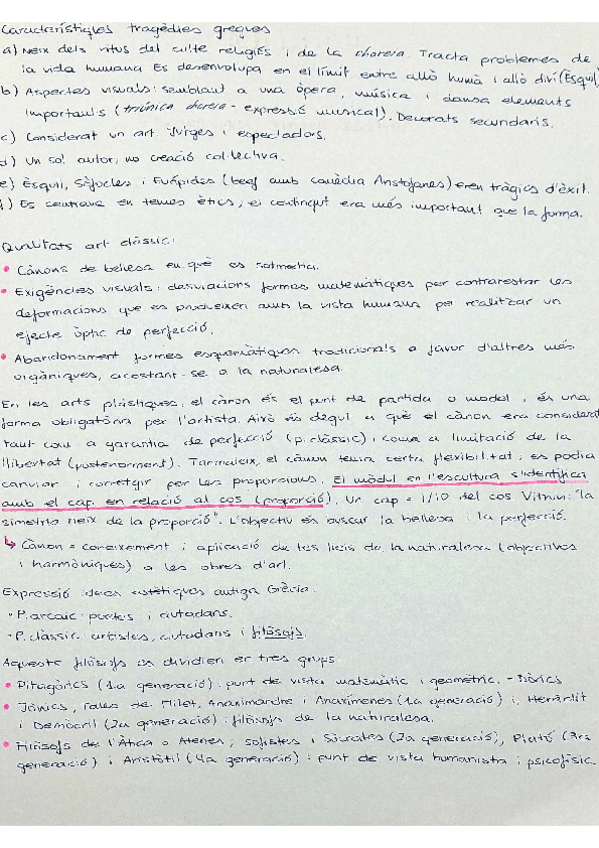 Característiques tragèdies gregues
a) Neix dels ritus del culte religiós i de la choreia. Tracta problemes de
la vida humana Es desenvolupa en el límit entre allò humà i allò diví (Esquil)
b) Aspectes visuals: semblant a una òpera, música i dansa elements
importants (triúnica choreia - expressió musical). Decorats secundaris.
c) Considerat un art. Jutges i espectadors.
d) Un sol autor, no creació col·lectiva.
e) Èsquil, Sòfocles i Eurípides (beef amb comèdia Aristofanes) eren tràgics d'èxit.
f) Es centrava en temes ètics, el contingut era més important que la forma.
Qualitats art clàssic:
• Cànons de bellesa en què es
• Exigències visuals: desviacions formes matemàtiques per contrarestar les
deformacions que es produeixen amb la vista humana per realitzar un
efecte òptic de perfecció.
• Abandonament formes esquemàtiques tradicionals a favor d'altres més
orgàniques, acostant-se a la naturalesa.
En les arts plàstiques, el cànon és el punt de partida o model, és una
forma obligatòria per l'artista. Això és degut a què el cànon era considerat
tant com a garantia de perfecció (p. clàssic) i com a limitació de la
llibertat (posteriorment). Tanmateix, el cànon tenia certa flexibilitat: es podia
canviar i corretgir per les proporcions. El mòdul en l'escultura s'identifica
amb el cap, en relació al cos (proporció). Un cap = 1/10 del cos Vitruvi: "la
simetria neix de la proporció". L'objectiu és buscar la bellesa i la perfecció.
↳ Cànon = coneixement i aplicació de les lleis de la naturalesa (objectives
i harmòniques) a les obres d'art.
Expressió idees estètiques antiga Grècia:
- P. arcaic: poetes i ciutadans.
- P. clàssic: artistes, ciutadans i filòsofs.
Aquests filòsofs es dividien en tres grups:
• Pitagòrics (1a generació): punt de vista matemàtic i geomètric. - Dòrics
• Jònics, Tales de Milet, Anaximandre i Anaxímenes (1a generació) i Heràclit
i Demòcrit (2a generació): filòsofs de la naturalesa.
• Filòsofs de l'Àtica o Atenes, sofistes i Sòcrates (2a generació), Plató (3ra
generació) i Aristòtil (4a generació): punt de vista humanista i psicofísic.